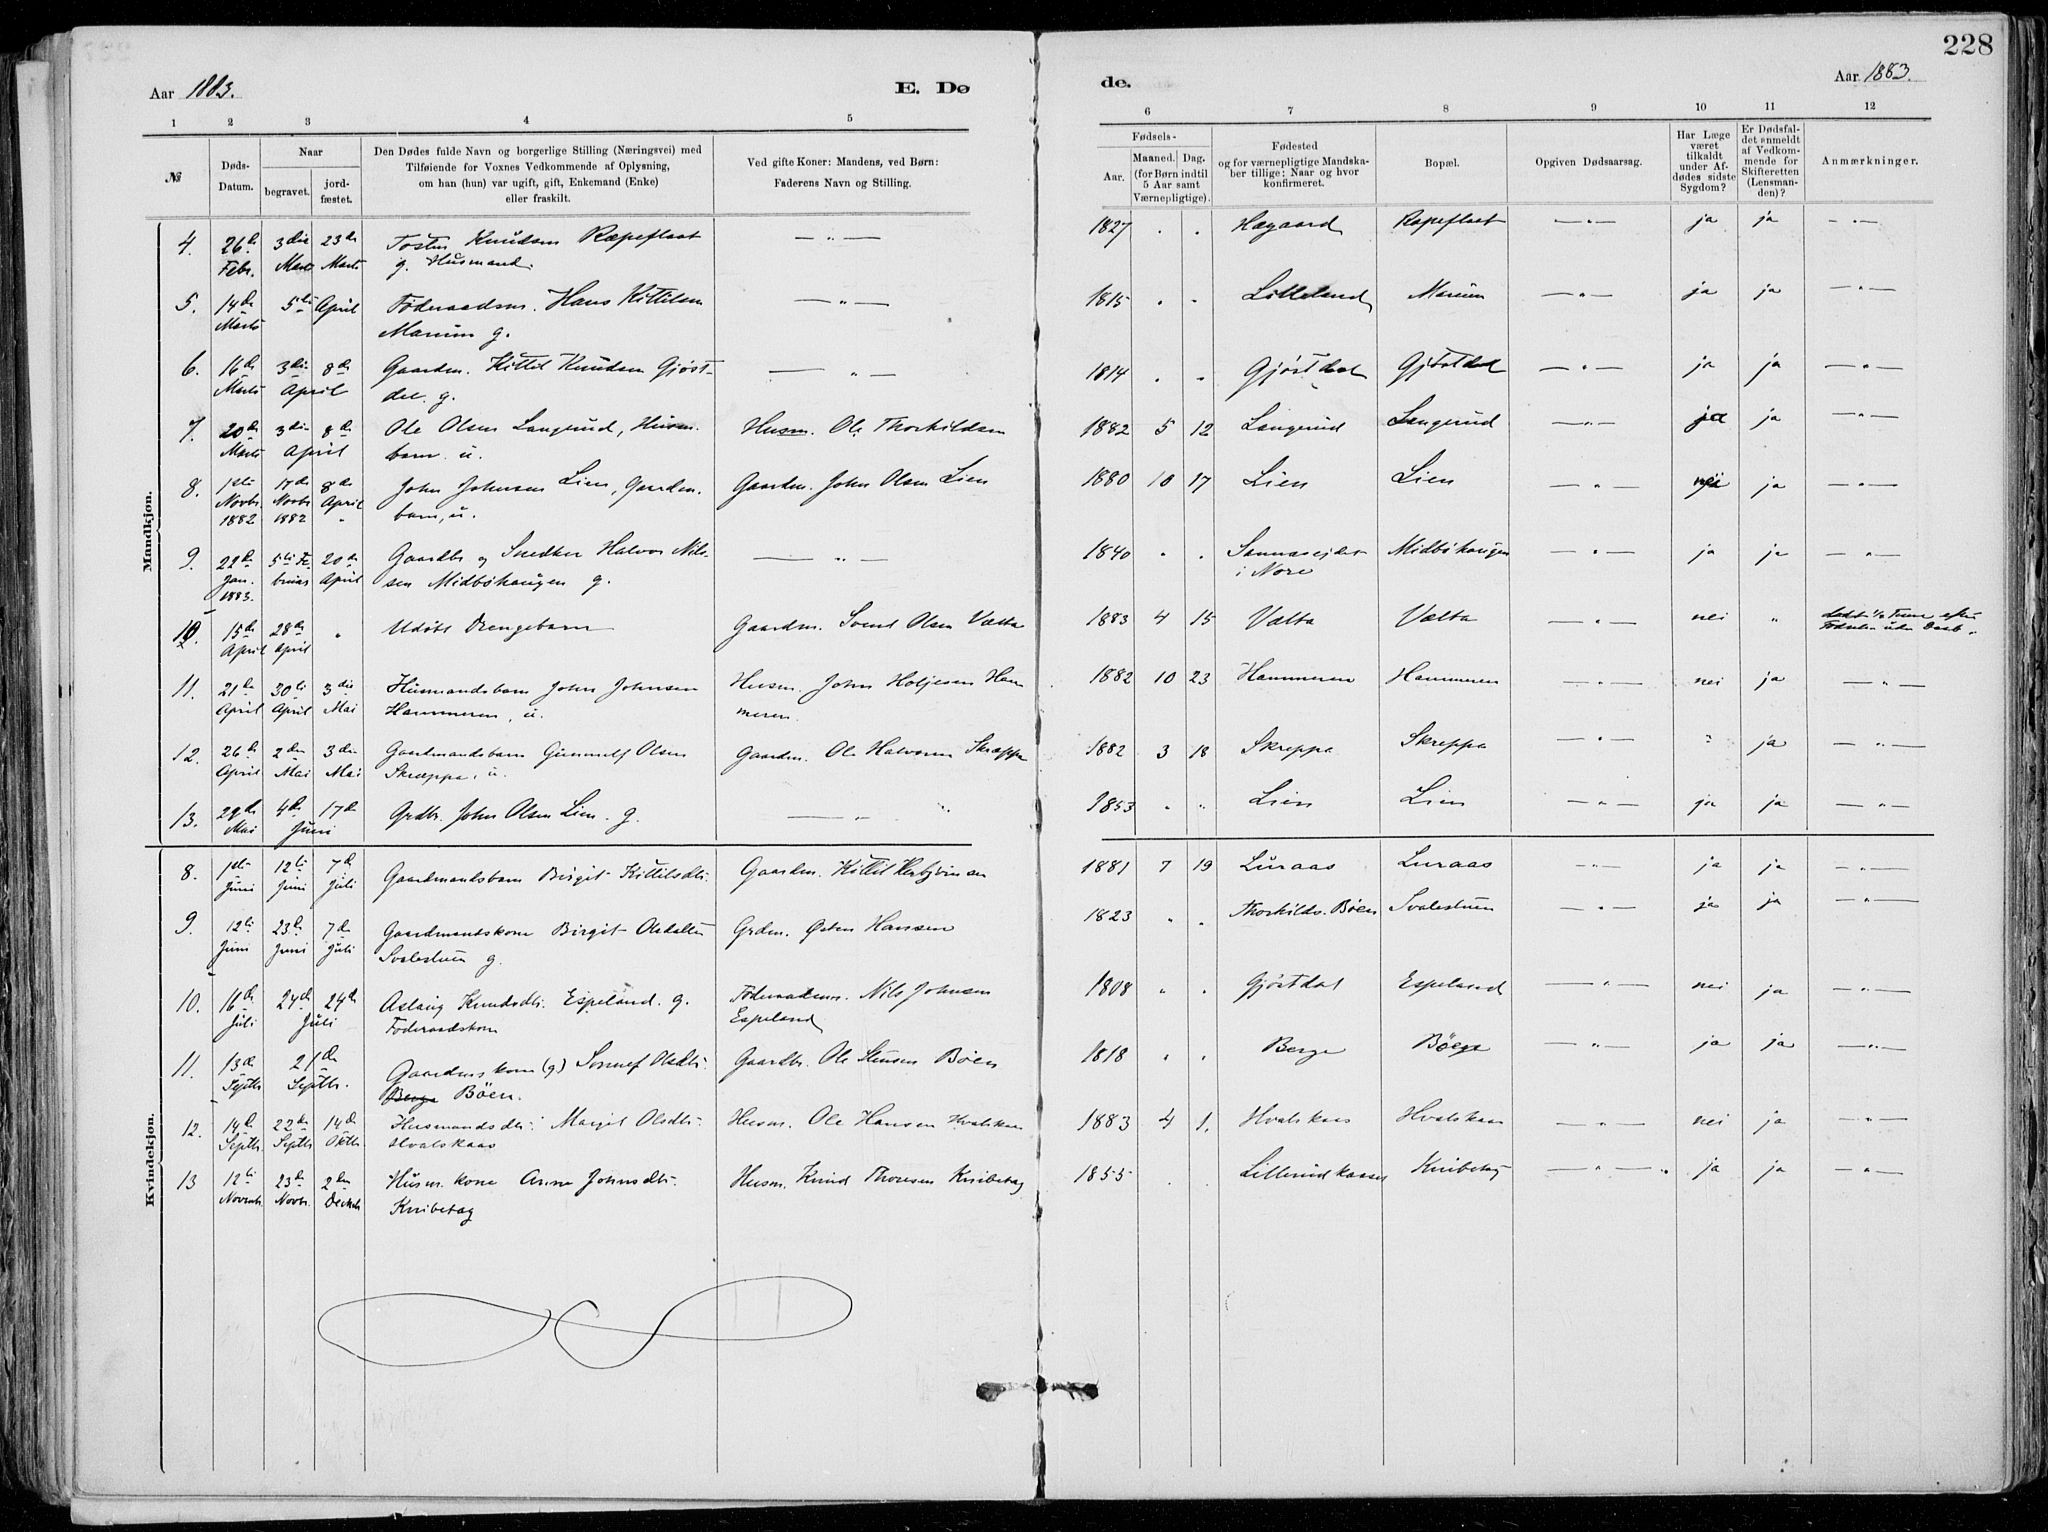 228
Aar 1883.
E. Dø
de.
Aar 1883.
1 2 3 4 5 6 7 8 9 10 11 12
№
Døds-
Datum.
Naar
begravet.
jord-
fæstet.
Den Dødes fulde Navn og borgerlige Stilling (Næringsvei) med
Tilføiende for Voxnes Vedkommende af Oplysning,
om han (hun) var ugift, gift, Enkemand (Enke)
eller fraskilt.
Ved gifte Koner: Mandens, ved Børn:
Faderens Navn og Stilling.
Fødsels-
Aar.
Maaned. Dag.
(for Børn indtil
5 Aar samt
Værnepligtige).
Fødested
og for værnepligtige Mandska-
ber tillige: Naar og hvor
konfirmeret.
Bopæl.
Opgiven Dødsaarsag.
Har Læge
været
tilkaldt
under Af-
dødes sidste
Sygdom?
Er Dødsfal-
det anmeldt
af Vedkom-
mende for
Skifteretten
(Lensman-
den)?
Anmærkninger.
Mandkjøn.
4. 26de 3die 23de Tosten Knudsen Ræpeflaat — " — 1827 . . Hægaard Ræpeflaat — " — ja ja — " —
Febr. Marts Marts g. Husmand.
5. 14de 5te April Føderaadsm. Hans Kittilsen — " — 1815 " " Lilleland Marum — " — ja ja — " —
Marts Marum g.
6. 16de 3die 8de Gaardm. Kittil Knudsen Gjøst- — " — 1814 " " Gjøstdal Gjøstdal — " — ja ja — " —
Marts April dal. g.
7. 20de 3die 8de Ole Olsen Langerud, Husm. Husm. Ole Thorkildsen 1882 5 12 Langerud Langerud — " — ja ja — " —
Marts April barn. u.
8. 1ste 17de 8de John Johnsen Lien, Gaardm. Gaardm. John Olsen Lien 1880 10 17 Lien Lien — " — nei ja — " —
Novbr. Novbr. April barn, u.
1882 1882 "
9. 22de 5te Fe- 20de Gaardbr og Snedker Halvor Nils- — " — 1840 " " Midbøhaugen — " — ja ja — " —
Jan. bruar April sen Midbøhaugen g. i Nore
1883.
10. 15de 28de " Udøbt Drengebarn Gaardm. Svend Olsen Vælta 1883 4 15 Vælta Vælta nei "
April April
11. 21de 30te 3die Husmandsbarn John Johnsen Husm. John Holjesen Ham 1882 10 23 Hammeren Hammeren — " — nei ja — " —
April April Mai Hammeren, u. meren.
12. 26de 2den 3die Gaardmandsbarn Gunnulf Olsen Gaardm. Ole Halvorsen Skræppa 1882 3 18 Skreppa Skreppa — " — " ja — " —
April Mai Mai Skræppa, u.
13. 29de 4de 17de Grdbr. John Olsen Lien. g. — " — 1853 " " Lien Lien — " — ja ja — " —
Mai Juni
Kvindekjøn.
8. 1ste 12te 7de Gaardmandsbarn Birgit Kittilsdtr. Gaardm. Kittil Herbjørnsen 1881 7 19 Luraas Luraas — " — ja ja — " —
Juni Juni Juli
9. 12te 23de 7de Gaardmandskone Birgit Olsdatter Grdm. Østen Hansen 1823 " " Thorkilds. Bøen Svalestuen — " — ja ja — " —
Juni Juni Juli Svalestuen g.
10. 16de 24de 24de Aslaug Knudsdtr. Espeland. g. Føderaadsm. Nils Johnsen 1808 " " Gjøstdal Espeland — " — nei ja — " —
Juli Juli Føderaadskone Espeland
11. 13de 21de Gaardmskone (g) Sonnef Olsdtr. Gaardbr. Ole Stensen Bøen 1818 " " Berge Bøen — " — ja ja — " —
Septbr. Septbr. Berge Bøen.
12. 14de 22de 14de Husmandsdtr. Margit Olsdtr. Husm. Ole Hansen Hvalskaas 1883 4 1. Hvalskaas Hvalskaas — " — nei ja — " —
Septbr. Septbr. Oktbr. Hvalskaas
13 12te 23de 2den Husm. kone Anne Johnsdtr. Husm. Knud Thoresen Knibetag 1855 . . Lillerud Knibetag — " — ja ja — " —
Novembr. Novbr. Decbr. Knibetag